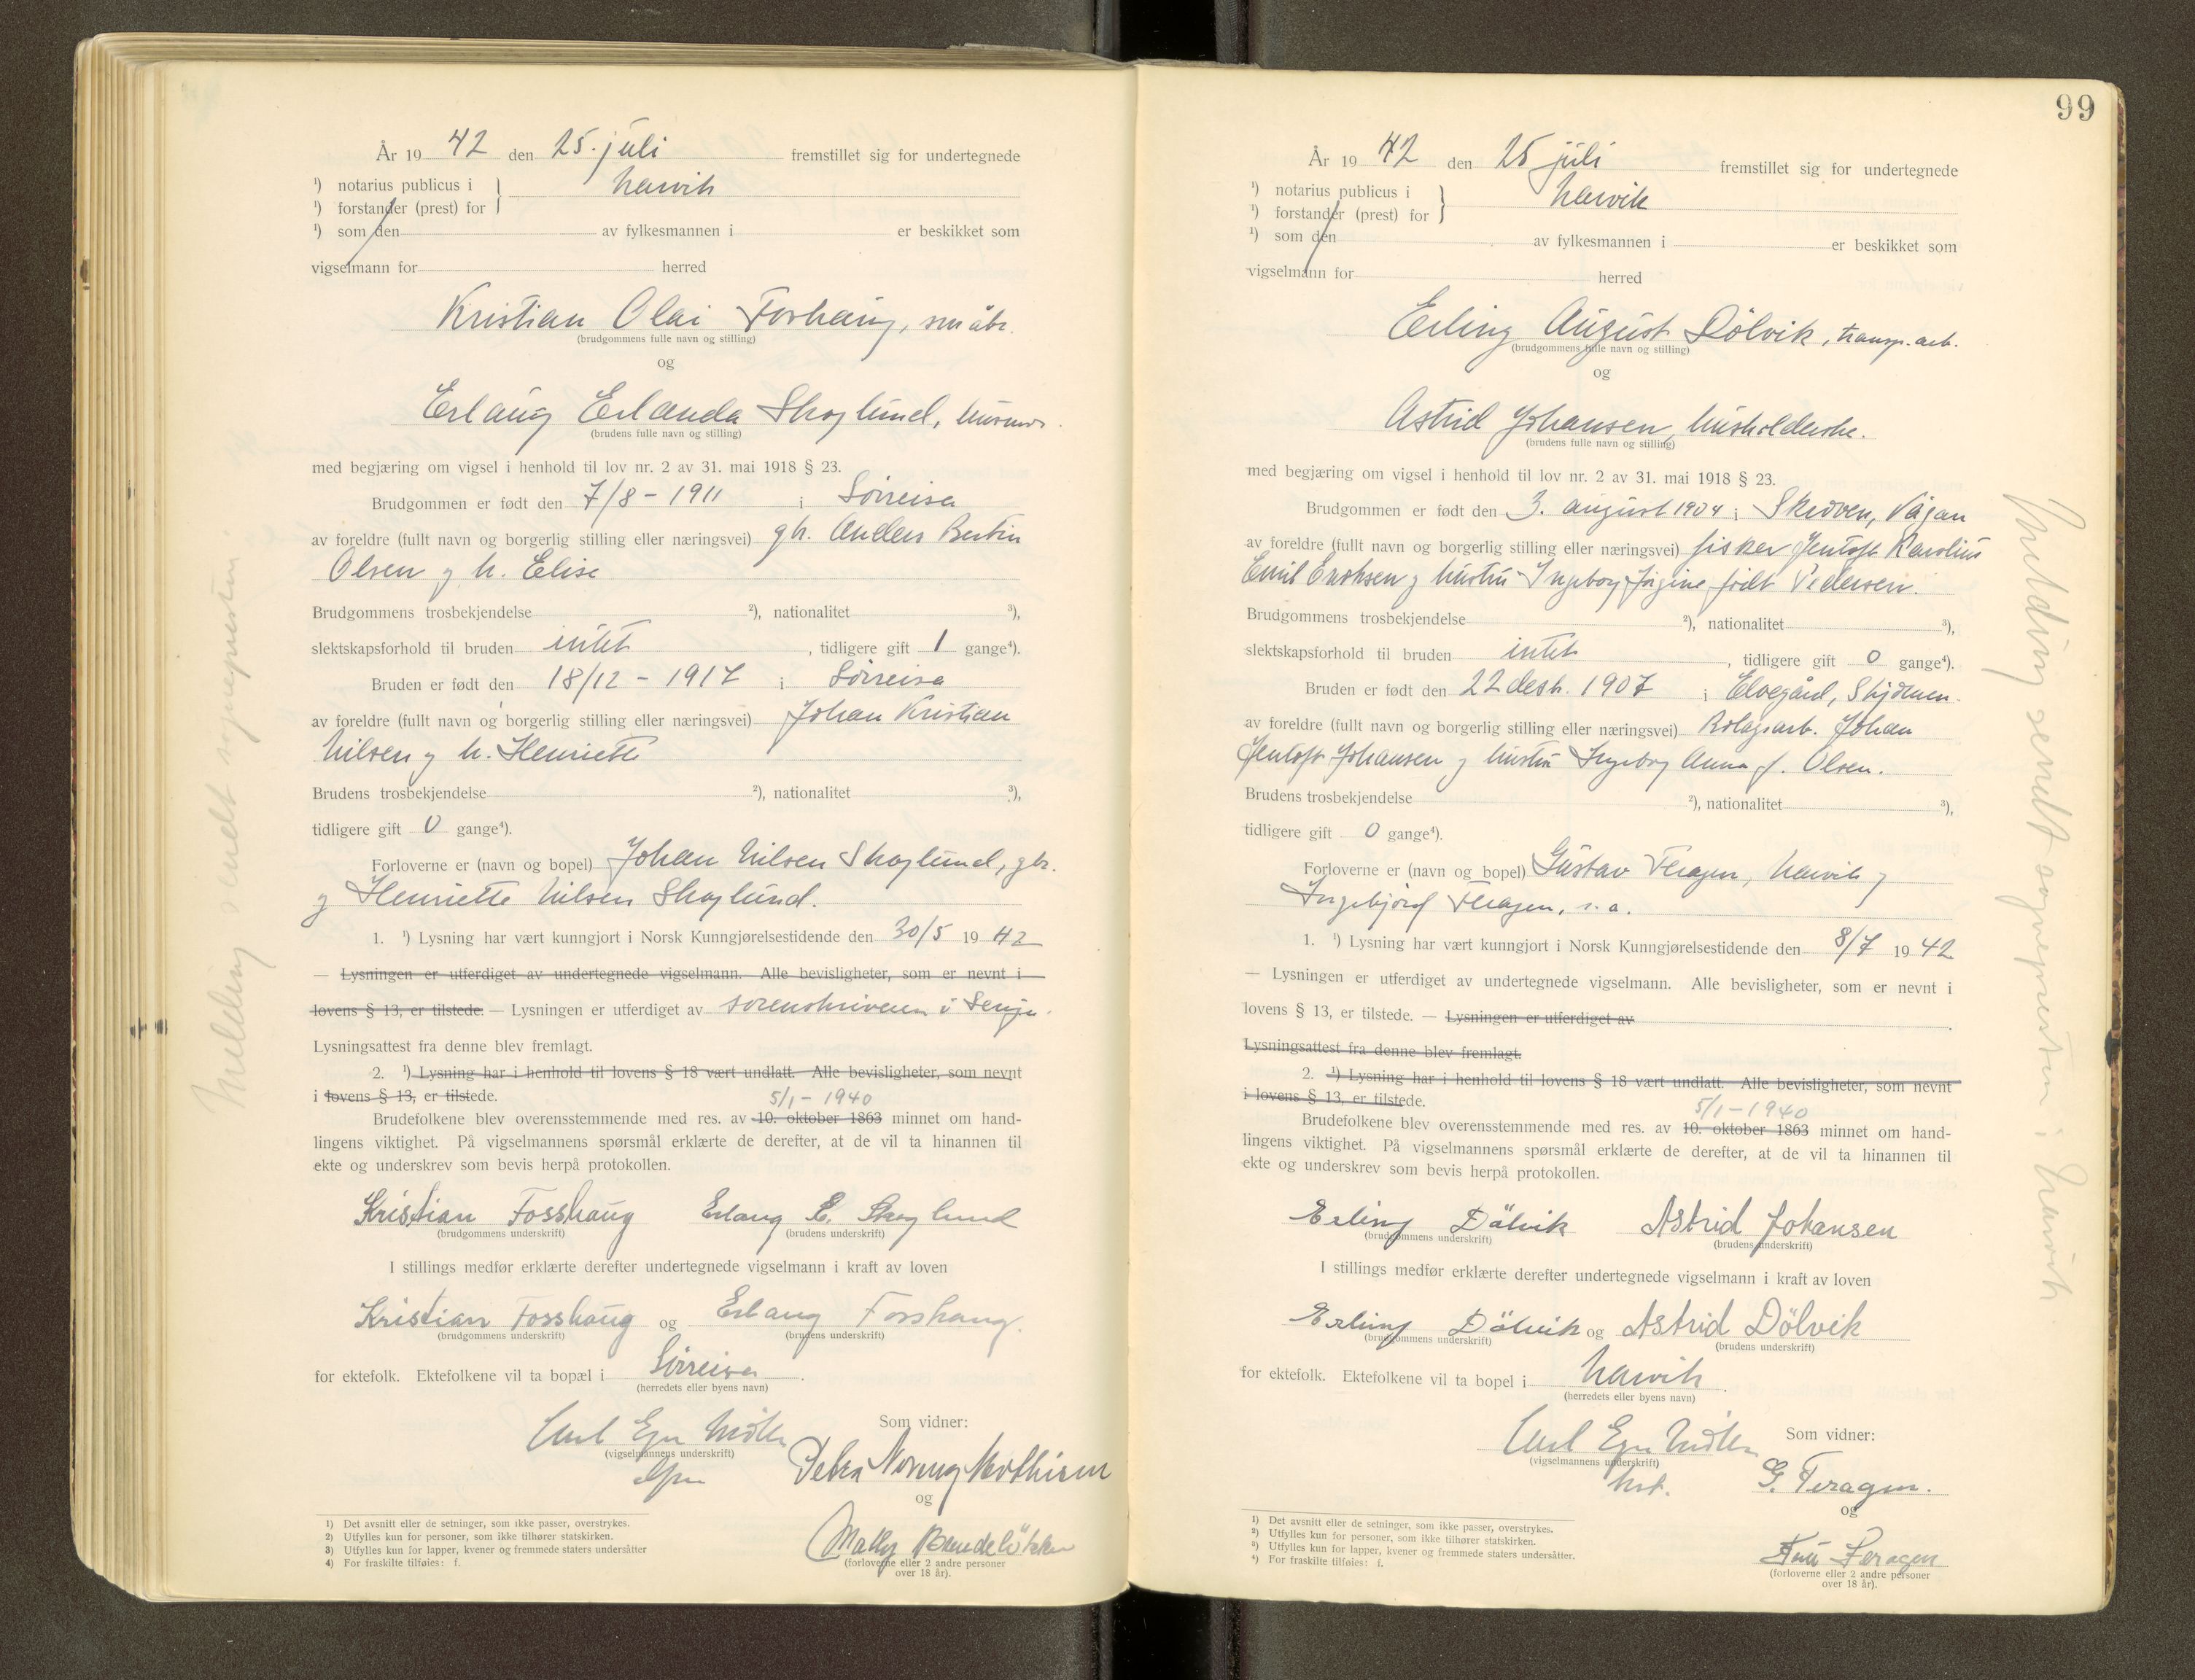 År 19 42 den 25. juli fremstillet sig for undertegnede
¹) notarius publicus i } Narvik
¹) forstander (prest) for
¹) som den av fylkesmannen i er beskikket som
vigselmann for herred
Kristian Olai Foshaug, småbr.
(brudgommens fulle navn og stilling)
og
Erlaug Erlanda Skoglund,
(brudens fulle navn og stilling)
med begjæring om vigsel i henhold til lov nr. 2 av 31. mai 1918 § 23.
Brudgommen er født den 7/8 - 1911 i Sörreisa
av foreldre (fullt navn og borgerlig stilling eller næringsvei) gb. Anders Bertin
Olsen og h. Elise
Brudgommens trosbekjendelse ²), nationalitet ³),
slektskapsforhold til bruden intet, tidligere gift 1 gange⁴).
Bruden er født den 18/12 - 1917 i Sörreisa
av foreldre (fullt navn og borgerlig stilling eller næringsvei) Johan Kristian
Nilsen og h. Henriette
Brudens trosbekjendelse ²), nationalitet ³),
tidligere gift 0 gange⁴).
Forloverne er (navn og bopel) Johan Nilsen Skoglund, gbr.
og Henriette Nilsen Skoglund.
1. ¹) Lysning har vært kunngjort i Norsk Kunngjørelsestidende den 30/5 19 42
— Lysningen er utferdiget av undertegnede vigselmann. Alle bevisligheter, som er nevnt i
lovens § 13, er tilstede. — Lysningen er utferdiget av sorenskriveren i Senja.
Lysningsattest fra denne blev fremlagt.
2. ¹) Lysning har i henhold til lovens § 18 vært undlatt. Alle bevisligheter, som nevnt
i lovens § 13, er tilstede.
5/1 - 1940
Brudefolkene blev overensstemmende med res. av 10. oktober 1863 minnet om hand-
lingens viktighet. På vigselmannens spørsmål erklærte de derefter, at de vil ta hinannen til
ekte og underskrev som bevis herpå protokollen.
Kristian Fosshaug Erlaug E. Skoglund
(brudgommens underskrift) (brudens underskrift)
I stillings medfør erklærte derefter undertegnede vigselmann i kraft av loven
Kristian Fosshaug og Erlaug Fosshaug.
(brudgommens underskrift) (brudens underskrift)
for ektefolk. Ektefolkene vil ta bopæl i Sörreisa.
(herredets eller byens navn)
Som vidner:
Carl Egn
(vigselmannens underskrift)
Petra
og
Mally
(forloverne eller 2 andre personer
over 18 år).
1) Det avsnitt eller de setninger, som ikke passer, overstrykes.
2) Utfylles kun for personer, som ikke tilhører statskirken.
3) Utfylles kun for lapper, kvener og fremmede staters undersåtter
4) For fraskilte tilføies: f.
Melding sendt sogneprest
99
År 19 42 den 25 juli fremstillet sig for undertegnede
¹) notarius publicus i } Narvik
¹) forstander (prest) for
¹) som den av fylkesmannen i er beskikket som
vigselmann for herred
Erling August Dölvik, transp. arb.
(brudgommens fulle navn og stilling)
og
Astrid Johansen, husholderske.
(brudens fulle navn og stilling)
med begjæring om vigsel i henhold til lov nr. 2 av 31. mai 1918 § 23.
Brudgommen er født den 3. august 1904 i Skroven, Vågan
av foreldre (fullt navn og borgerlig stilling eller næringsvei) fisker Jentoft Karolius
Emil Enoksen og hustru Ingeborg Jörgine född Pedersen.
Brudgommens trosbekjendelse ²), nationalitet ³),
slektskapsforhold til bruden intet, tidligere gift 0 gange⁴).
Bruden er født den 22 desb. 1907 i Elvegård, Skjomen.
av foreldre (fullt navn og borgerlig stilling eller næringsvei) Bolagsarb. Johan
Jentoft Johansen og hustru Ingeborg Anna f. Olsen.
Brudens trosbekjendelse ²), nationalitet ³),
tidligere gift 0 gange⁴).
Forloverne er (navn og bopel) Gustav Feragen, Narvik og
Ingebjörg Feragen, s. a.
1. ¹) Lysning har vært kunngjort i Norsk Kunngjørelsestidende den 8/7 19 42
— Lysningen er utferdiget av undertegnede vigselmann. Alle bevisligheter, som er nevnt i
lovens § 13, er tilstede. — Lysningen er utferdiget av
Lysningsattest fra denne blev fremlagt.
2. ¹) Lysning har i henhold til lovens § 18 vært undlatt. Alle bevisligheter, som nevnt
i lovens § 13, er tilstede.
5/1 - 1940
Brudefolkene blev overensstemmende med res. av 10. oktober 1863 minnet om hand-
lingens viktighet. På vigselmannens spørsmål erklærte de derefter, at de vil ta hinannen til
ekte og underskrev som bevis herpå protokollen.
Erling Dölvik Astrid Johansen
(brudgommens underskrift) (brudens underskrift)
I stillings medfør erklærte derefter undertegnede vigselmann i kraft av loven
Erling Dölvik og Astrid Dölvik
(brudgommens underskrift) (brudens underskrift)
for ektefolk. Ektefolkene vil ta bopel i Narvik.
(herredets eller byens navn)
Som vidner:
Carl Egn
(vigselmannens underskrift)
G. Feragen.
og
Feragen
(forloverne eller 2 andre personer
over 18 år).
¹) Det avsnitt eller de setninger, som ikke passer, overstrykes.
²) Utfylles kun for personer, som ikke tilhører statskirken.
³) Utfylles kun for lapper, kvener og fremmede staters undersåtter.
⁴) For fraskilte tilføies: f.
Melding sendt sognepresten i Narvik